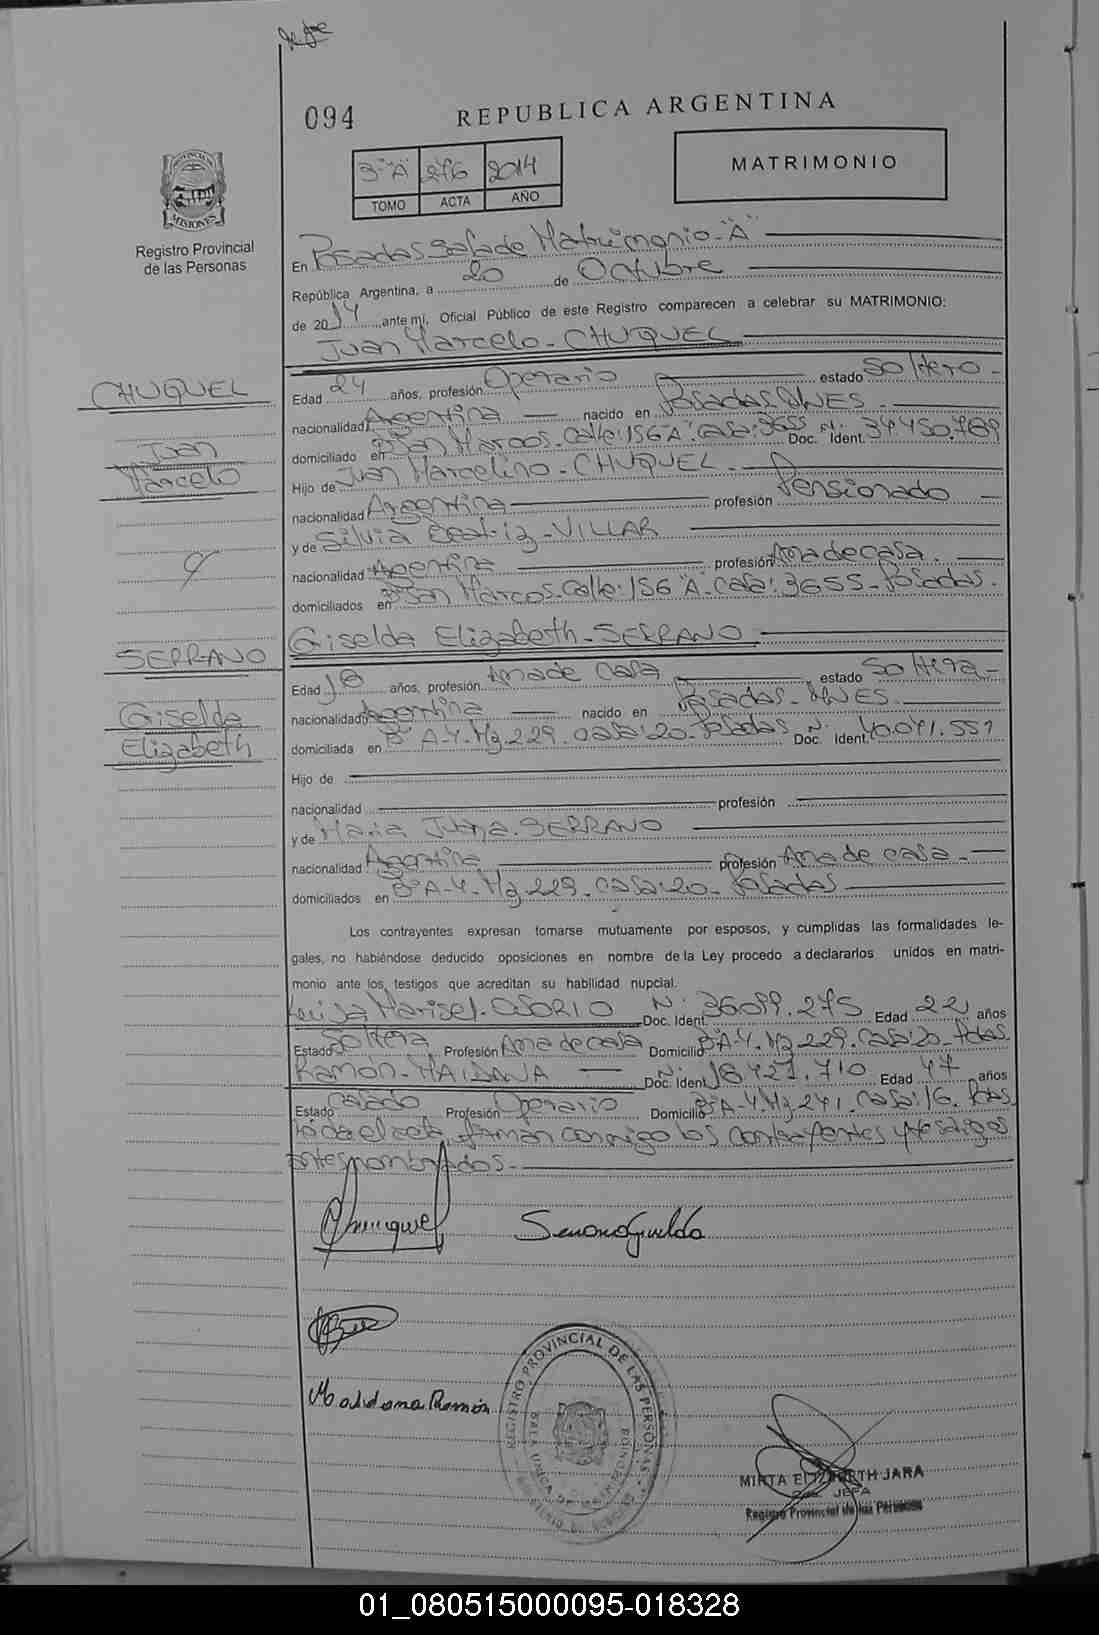 094
REPUBLICA ARGENTINA
3º "A" 276 2014
TOMO ACTA AÑO
MATRIMONIO
PROVINCIA DE
MISIONES
Registro Provincial
de las Personas
En Posadas Sala de Matrimonio "A"
República Argentina, a 20 de Octubre
de 2014 ante mi, Oficial Público de este Registro comparecen a celebrar su MATRIMONIO:
Juan Marcelo - CHUQUEL
CHUQUEL
Juan
Marcelo
Edad 24 años, profesión Operario estado Soltero -
nacionalidad Argentina nacido en Posadas Mnes.
domiciliado en Bº San Marcos. Calle: 156 "A" casa: 3655 Doc. Ident. Nº: 34.450.789
Hijo de Juan Marcelino - CHUQUEL.
nacionalidad Argentina profesión Pensionado
y de Silvia Beatriz - VILLAR
nacionalidad Argentina profesión Ama de casa.
domiciliados en Bº San Marcos. Calle: 156 "A". casa: 3655 - Posadas.
Giselda Elizabeth - SERRANO
SERRANO
Giselda
Elizabeth
Edad 18 años, profesión Ama de casa estado Soltera -
nacionalidad Argentina nacido en Posadas - Mnes.
domiciliada en Bº A-4. Mz. 229. casa: 20. Posadas Doc. Ident. Nº: 40.041.551
Hijo de
nacionalidad profesión
y de Maria Juana. SERRANO
nacionalidad Argentina profesión Ama de casa -
domiciliados en Bº A-4. Mz. 229. casa: 20 - Posadas
Los contrayentes expresan tomarse mutuamente por esposos, y cumplidas las formalidades le-
gales, no habiéndose deducido oposiciones en nombre de la Ley procedo a declararlos unidos en matri-
monio ante los testigos que acreditan su habilidad nupcial.
Marisel. OSORIO Doc. Ident. Nº: 36.099.275 Edad 22 años
Estado Soltera Profesión Ama de casa Domicilio Bº A-4. Mz. 229. casa: 20 - Pdas.
Ramón - MAIDANA Doc. Ident. Nº: 18.427.710 Edad 47 años
Estado Casado Profesión Operario Domicilio Bº A-4. Mz. 241. casa: 16. Pdas.
Leida el acta, firman conmigo los contrayentes y testigos
antes nombrados -
Chuquel Serrano Giselda
Maidana Ramón
REGISTRO PROVINCIAL DE LAS PERSONAS
MIRTA ELIZABETH JARA
JEFA
Registro Provincial de las Personas
01_080515000095-018328